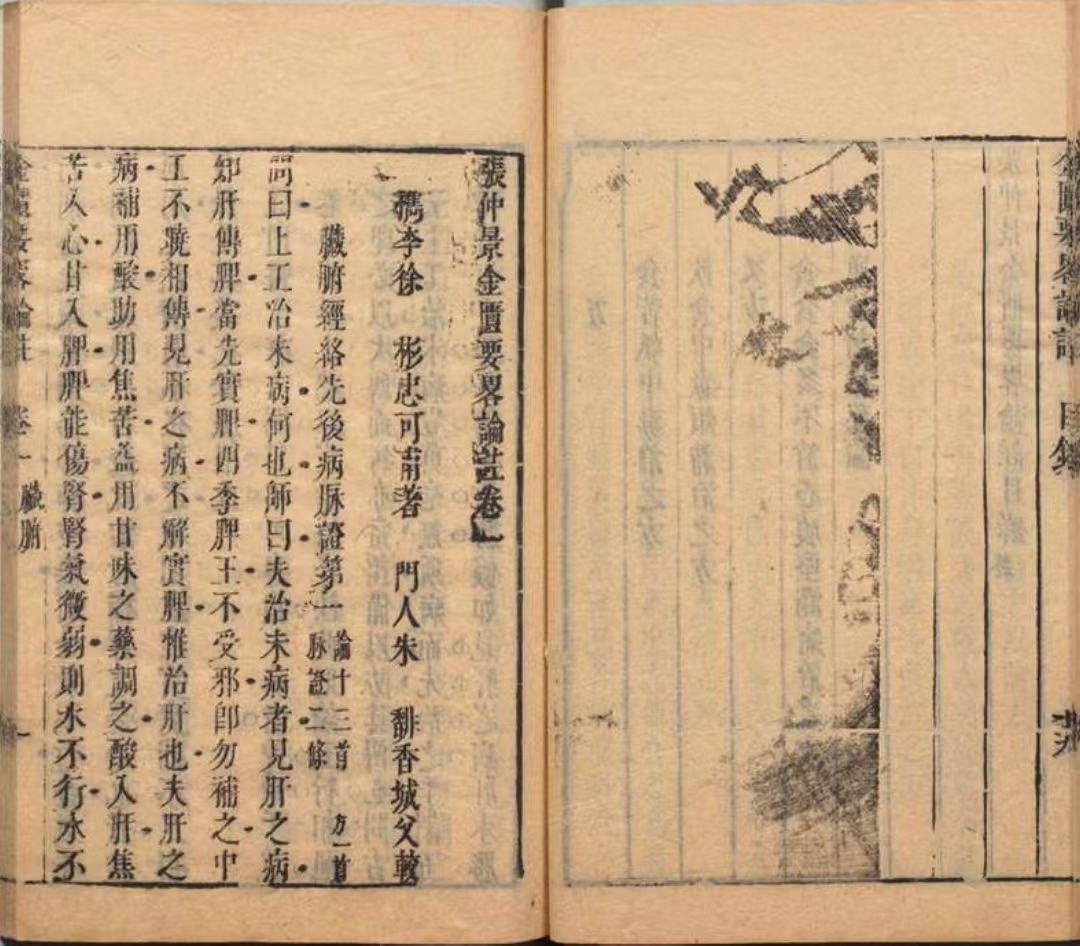 金匱要畧論註 目錄
張仲景金匱要畧論註卷一
檇李徐 彬忠可甫著 門人朱 馡香城父較
臟腑經絡先後病脉證第一 論十三首 脉證二條 方一首
問曰上工治未病何也師曰夫治未病者見肝之病
知肝傳脾當先實脾四季脾王不受邪卽勿補之中
工不曉相傳見肝之病不解實脾惟治肝也夫肝之
病補用酸助用焦苦益用甘味之藥調之酸入肝焦
苦入心甘入脾脾能傷腎腎氣微弱則水不行水不
金匱要畧論註 卷一 臟腑 一